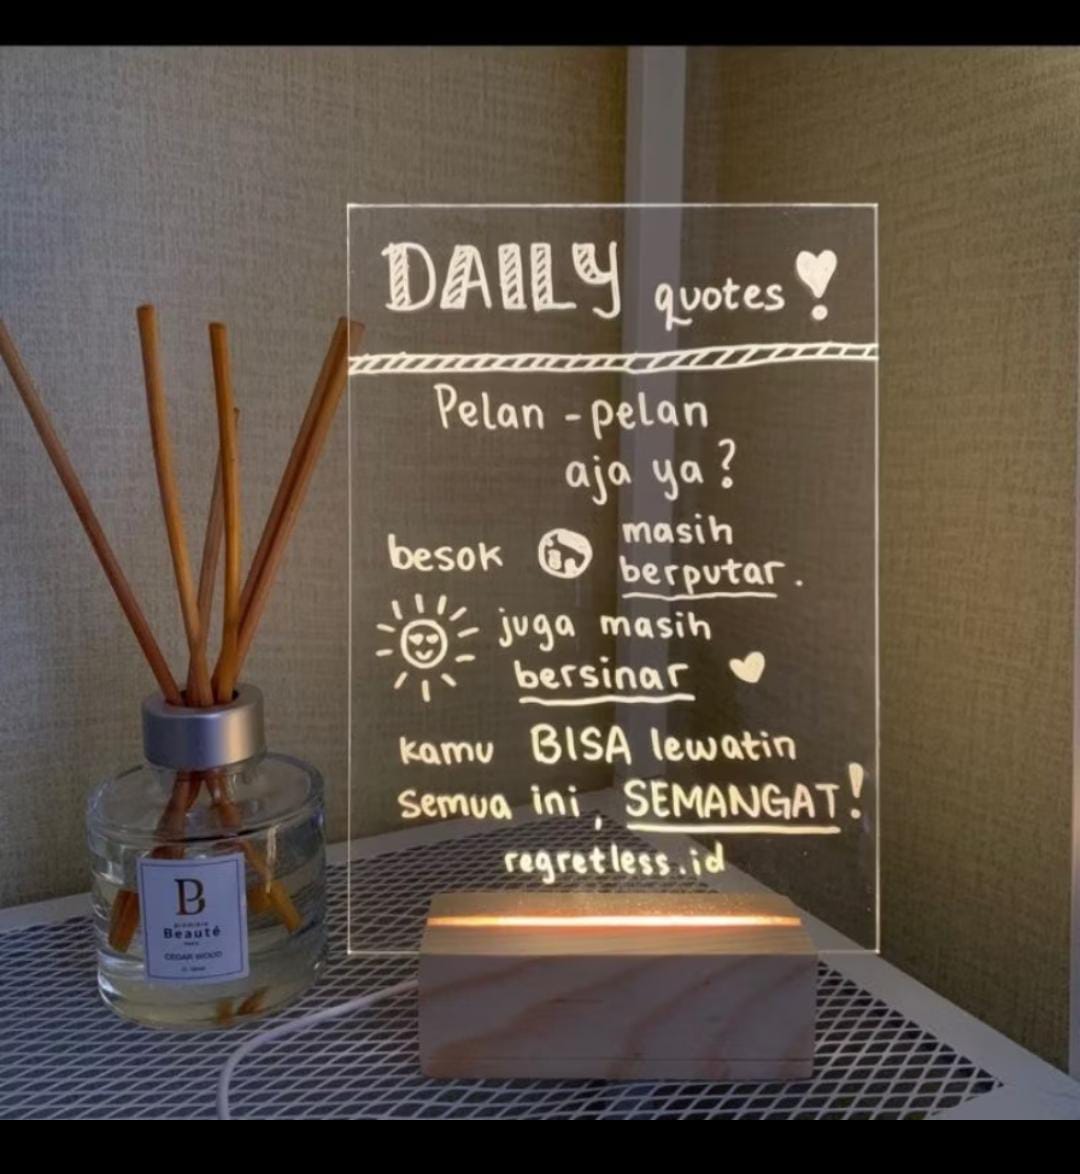 DAILY quotes!
Pelan - pelan
aja ya?
besok masih
berputar.
juga masih
bersinar
kamu BISA lewatin
semua ini, SEMANGAT!
regretless.id
B
Beauté
CEDAR WOOD